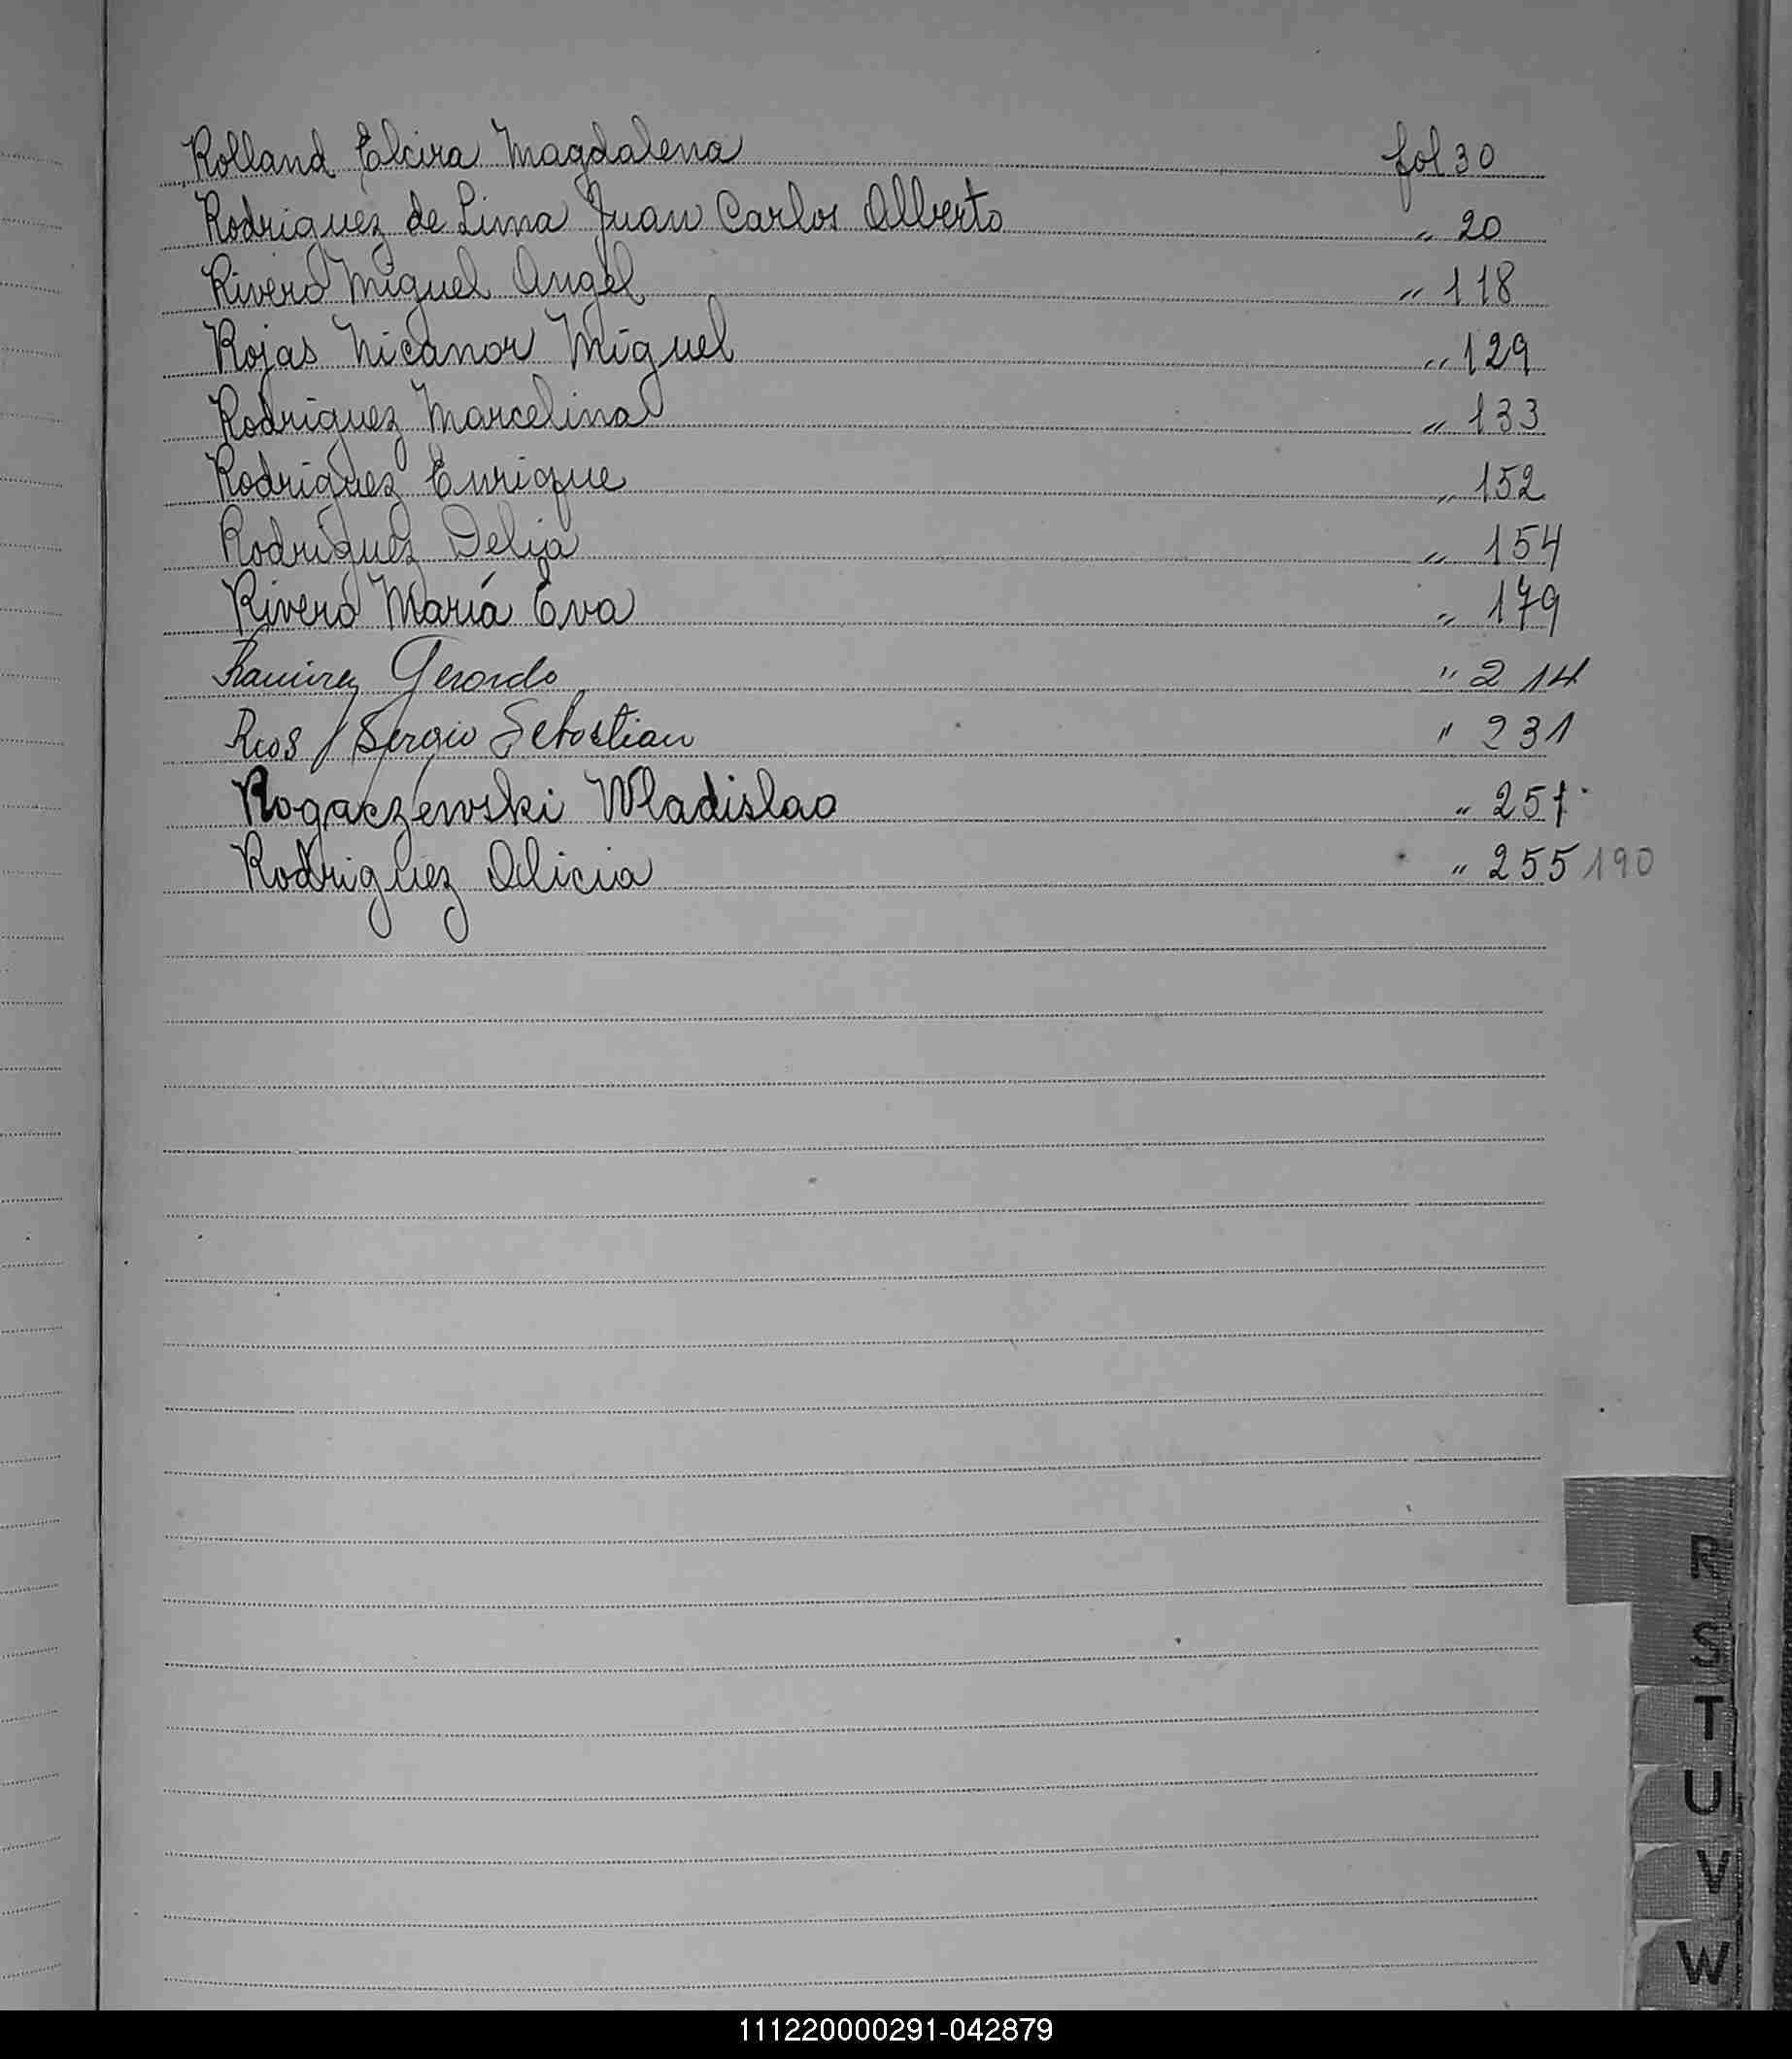 Rolland Elcira Magdalena fol 30
Rodriguez de Lima Juan Carlos Alberto " 20
Rivero Miguel Angel " 118
Rojas Nicanor Miguel " 129
Rodriguez Marcelina " 133
Rodriguez Enrique " 152
Rodriguez Delia " 154
Rivero María Eva " 179
Ramirez Gerardo " 214
Rios Sergio Sebastian " 231
Rogaczewski Wladislao " 251
Rodriguez Alicia " 255 190
R
S
T
U
V
W
111220000291-042879